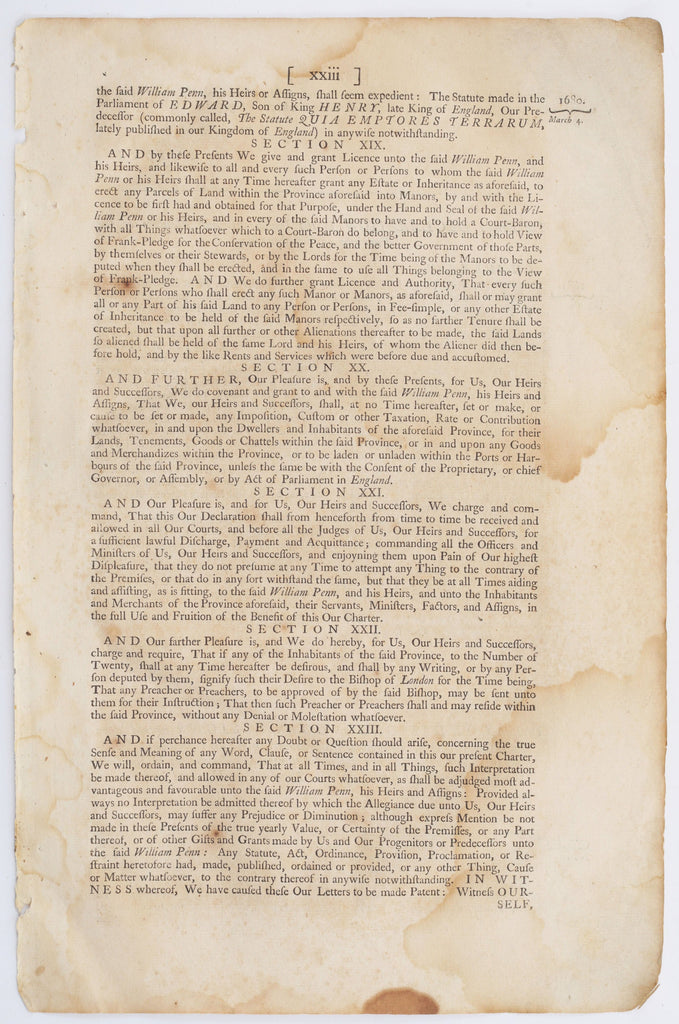 [ xxiii ]
the ſaid William Penn, his Heirs or Aſſigns, ſhall ſeem expedient: The Statute made in the
Parliament of EDWARD, Son of King HENRY, late King of England, Our Pre-
deceſſor (commonly called, The Statute QUIA EMPTORES TERRARUM,
lately publiſhed in our Kingdom of England) in anywiſe notwithſtanding.
1680.
March 4.
SECTION XIX.
AND by theſe Preſents We give and grant Licence unto the ſaid William Penn, and
his Heirs, and likewiſe to all and every ſuch Perſon or Perſons to whom the ſaid William
Penn or his Heirs ſhall at any Time hereafter grant any Eſtate or Inheritance as aforeſaid, to
erect any Parcels of Land within the Province aforeſaid into Manors, by and with the Li-
cence to be firſt had and obtained for that Purpoſe, under the Hand and Seal of the ſaid Wil-
liam Penn or his Heirs, and in every of the ſaid Manors to have and to hold a Court-Baron,
with all Things whatſoever which to a Court-Baron do belong, and to have and to hold View
of Frank-Pledge for the Conſervation of the Peace, and the better Government of thoſe Parts,
by themſelves or their Stewards, or by the Lords for the Time being of the Manors to be de-
puted when they ſhall be erected, and in the ſame to uſe all Things belonging to the View
of Frank-Pledge. AND We do further grant Licence and Authority, That every ſuch
Perſon or Perſons who ſhall erect any ſuch Manor or Manors, as aforeſaid, ſhall or may grant
all or any Part of his ſaid Land to any Perſon or Perſons, in Fee-ſimple, or any other Eſtate
of Inheritance to be held of the ſaid Manors reſpectively, ſo as no farther Tenure ſhall be
created, but that upon all further or other Alienations thereafter to be made, the ſaid Lands
ſo aliened ſhall be held of the ſame Lord and his Heirs, of whom the Aliener did then be-
fore hold, and by the like Rents and Services which were before due and accuſtomed.
SECTION XX.
AND FURTHER, Our Pleaſure is, and by theſe Preſents, for Us, Our Heirs
and Succeſſors, We do covenant and grant to and with the ſaid William Penn, his Heirs and
Aſſigns, That We, our Heirs and Succeſſors, ſhall, at no Time hereafter, ſet or make, or
cauſe to be ſet or made, any Impoſition, Cuſtom or other Taxation, Rate or Contribution
whatſoever, in and upon the Dwellers and Inhabitants of the aforeſaid Province, for their
Lands, Tenements, Goods or Chattels within the ſaid Province, or in and upon any Goods
and Merchandizes within the Province, or to be laden or unladen within the Ports or Har-
bours of the ſaid Province, unleſs the ſame be with the Conſent of the Proprietary, or chief
Governor, or Aſſembly, or by Act of Parliament in England.
SECTION XXI.
AND Our Pleaſure is, and for Us, Our Heirs and Succeſſors, We charge and com-
mand, That this Our Declaration ſhall from henceforth from time to time be received and
allowed in all Our Courts, and before all the Judges of Us, Our Heirs and Succeſſors, for
a ſufficient lawful Diſcharge, Payment and Acquittance; commanding all the Officers and
Miniſters of Us, Our Heirs and Succeſſors, and enjoyning them upon Pain of Our higheſt
Diſpleaſure, that they do not preſume at any Time to attempt any Thing to the contrary of
the Premiſes, or that do in any ſort withſtand the ſame, but that they be at all Times aiding
and aſſiſting, as is fitting, to the ſaid William Penn, and his Heirs, and unto the Inhabitants
and Merchants of the Province aforeſaid, their Servants, Miniſters, Factors, and Aſſigns, in
the full Uſe and Fruition of the Benefit of this Our Charter.
SECTION XXII.
AND Our farther Pleaſure is, and We do hereby, for Us, Our Heirs and Succeſſors,
charge and require, That if any of the Inhabitants of the ſaid Province, to the Number of
Twenty, ſhall at any Time hereafter be deſirous, and ſhall by any Writing, or by any Per-
ſon deputed by them, ſignify ſuch their Deſire to the Biſhop of London for the Time being,
That any Preacher or Preachers, to be approved of by the ſaid Biſhop, may be ſent unto
them for their Inſtruction; That then ſuch Preacher or Preachers ſhall and may reſide within
the ſaid Province, without any Denial or Moleſtation whatſoever.
SECTION XXIII.
AND if perchance hereafter any Doubt or Queſtion ſhould ariſe, concerning the true
Senſe and Meaning of any Word, Clauſe, or Sentence contained in this our preſent Charter,
We will, ordain, and command, That at all Times, and in all Things, ſuch Interpretation
be made thereof, and allowed in any of our Courts whatſoever, as ſhall be adjudged moſt ad-
vantageous and favourable unto the ſaid William Penn, his Heirs and Aſſigns: Provided al-
ways no Interpretation be admitted thereof by which the Allegiance due unto Us, Our Heirs
and Succeſſors, may ſuffer any Prejudice or Diminution; although expreſs Mention be not
made in theſe Preſents of the true yearly Value, or Certainty of the Premiſſes, or any Part
thereof, or of other Gifts and Grants made by Us and Our Progenitors or Predeceſſors unto
the ſaid William Penn: Any Statute, Act, Ordinance, Proviſion, Proclamation, or Re-
ſtraint heretofore had, made, publiſhed, ordained or provided, or any other Thing, Cauſe
or Matter whatſoever, to the contrary thereof in anywiſe notwithſtanding. IN WIT-
NESS whereof, We have cauſed theſe Our Letters to be made Patent: Witneſs OUR-
SELF,